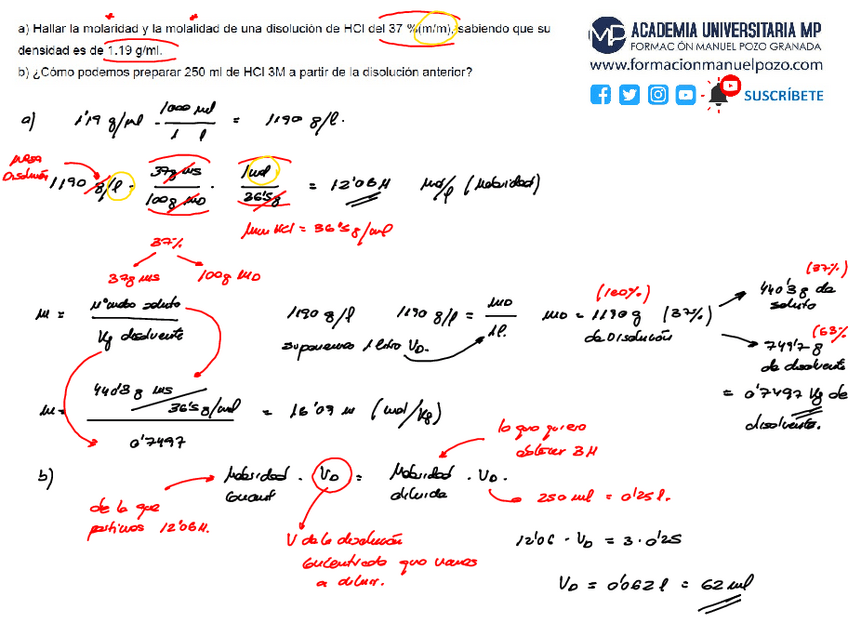 a) Hallar la molaridad y la molalidad de una disolución de HCl del 37 % (m/m), sabiendo que su
densidad es de 1.19 g/ml.
b) ¿Cómo podemos preparar 250 ml de HCl 3M a partir de la disolución anterior?
ACADEMIA UNIVERSITARIA MP
FORMACIÓN MANUEL POZO GRANADA
www.formacionmanuelpozo.com
SUSCRÍBETE
a) 1'19 g/ml · 1000 ml / 1 l = 1190 g/l.
masa
Disolución
1190 g/l · 37g ms / 100g mD · 1mol / 36'5g = 12'06 M mol/l (Molaridad)
Mm HCl = 36'5 g/mol
37%
37g ms 100g mD
m = nº moles soluto / Kg disolvente
1190 g/l 1190 g/l = mD / 1l. mD = 1190 g (37%)
suponemos 1 litro VD.
(100%)
de Disolución
(37%)
440'3 g de
soluto
(63%
749'7 g
de disolvente
= 0'7497 Kg de
disolvente.
m = 440'3 g ms / 36'5 g/mol / 0'7497 = 16'09 m (mol/Kg)
b) Molaridad concent · VD = Molaridad diluida · VD.
lo que quiero
obtener 3M
de la que
partimos 12'06M.
250 ml = 0'25 l.
V de la disolución
concentrada que vamos
a diluir.
12'06 · VD = 3 · 0'25
VD = 0'062 l = 62 ml